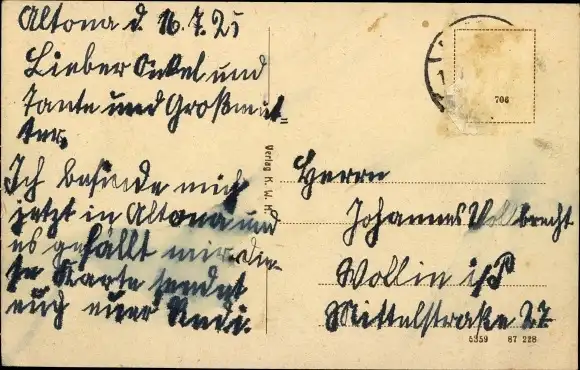 Altona d. 16.7.25
Lieber Onkel und
Tante und Großmut=
ter,
Ich befinde mich
jetzt in Altona und
es gefällt mir. die=
se Karte sendet
euch euer Rudi.
Verlag K. W. H.
Herrn
Johannes Vollbrecht
Wollin i/P
Mittelstraße 27
706
5359 87 228